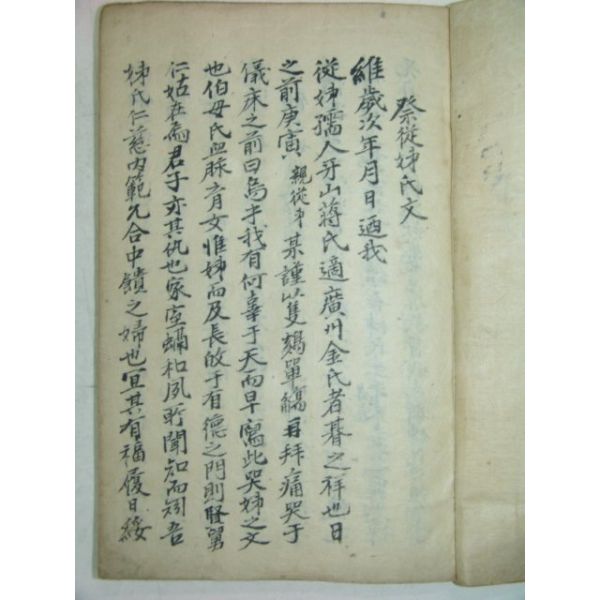 祭從姊氏文
維歲次年月日迺我
從姊孺人牙山蔣氏適廣州金氏者朞之祥也日
之前庚寅親從弟某謹以隻鷄單觴再拜痛哭于
儀床之前曰烏乎我有何辜于天而早寫此哭姊之文
也伯母氏血脉育女惟姊而及長啟于有德之門則賢舅
仁姑在焉君子亦其仇也家室和夙所聞知而矧吾
姊氏仁慈內範允合中饋之婦也宜其有福履日綏